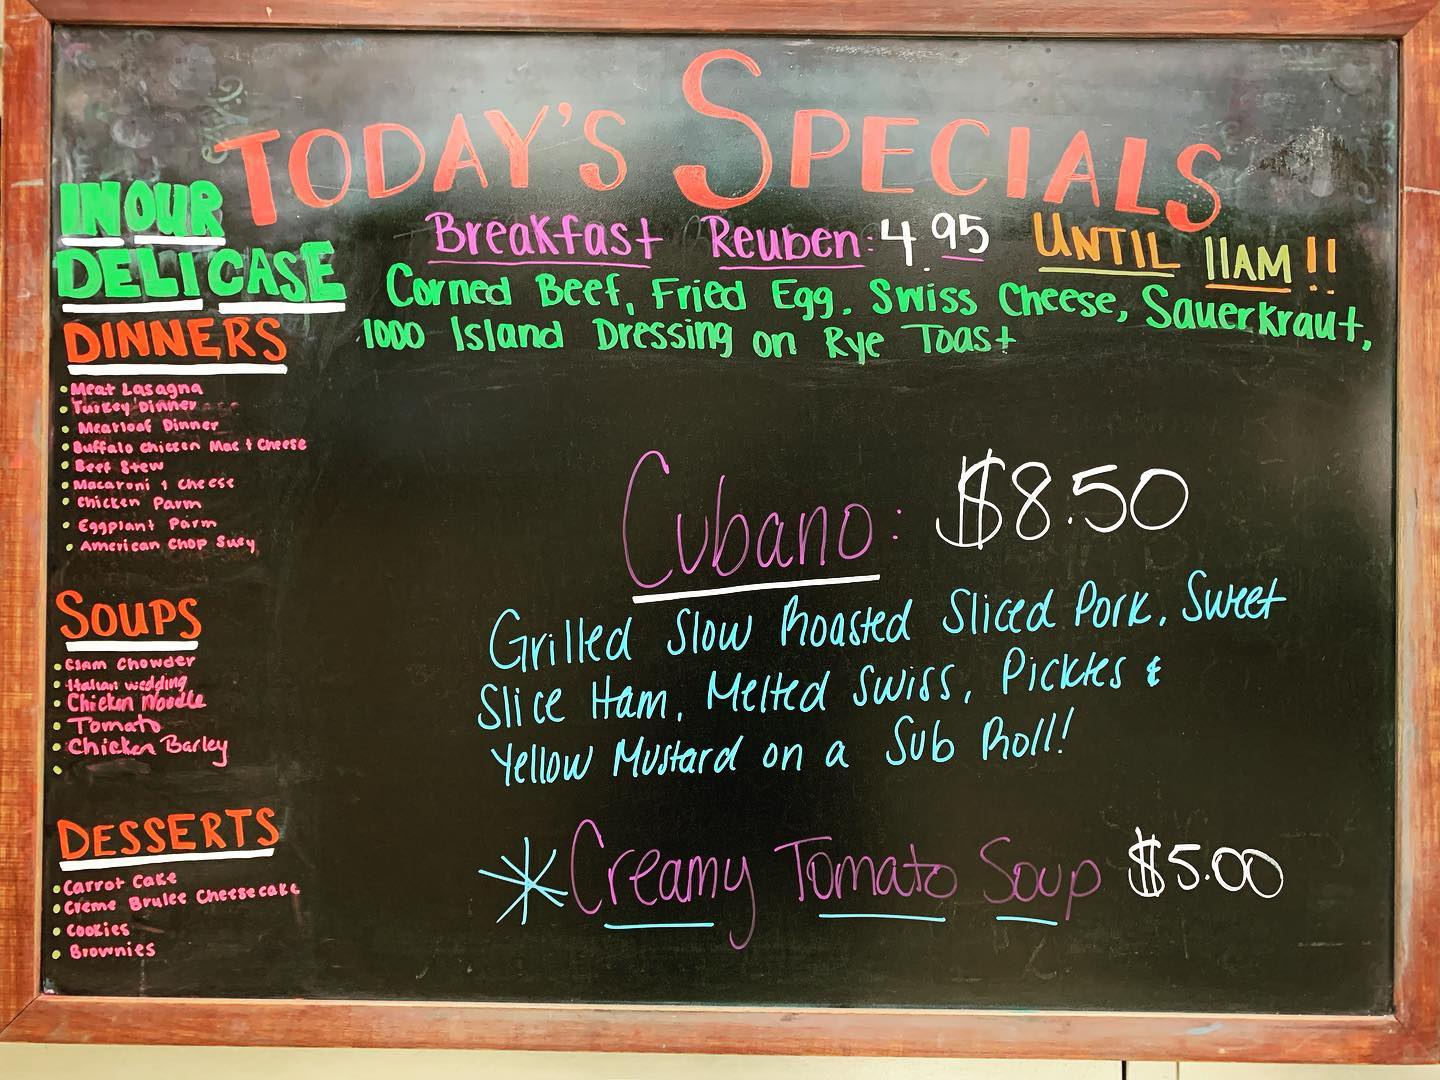 TODAY'S SPECIALS
IN OUR
DELI CASE
DINNERS
• Meat Lasagna
• Turkey Dinner
• Meatloaf Dinner
• Buffalo Chicken Mac + Cheese
• Beef Stew
• Macaroni + Cheese
• Chicken Parm
• Eggplant Parm
• American Chop Suey
SOUPS
• Clam Chowder
• Italian wedding
• Chicken Noodle
• Tomato
• Chicken Barley
•
DESSERTS
• Carrot Cake
• Creme Brulee Cheesecake
• Cookies
• Brownies
Breakfast Reuben: 4.95 UNTIL 11AM!!
Corned Beef, Fried Egg, Swiss Cheese, Sauerkraut,
1000 Island Dressing on Rye Toast
Cubano: $8.50
Grilled Slow Roasted Sliced Pork, Sweet
Slice Ham, Melted Swiss, Pickles &
Yellow Mustard on a Sub Roll!
* Creamy Tomato Soup $5.00